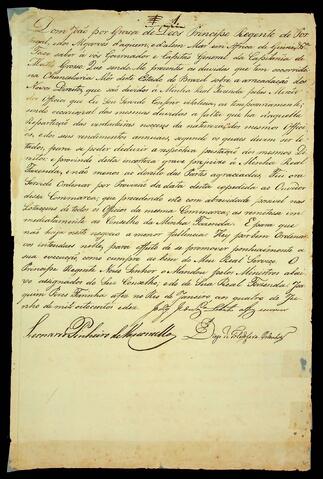 Dom João por Graça de Deos Principe Regente de Por
tugal, e dos Algarves d'aquem, e d'alem Mar em Africa de Guiné &ca
Faço saber a vós Governador e Capitão General da Capitania de
Matto Grosso Que sendo-Me prezentes as duvidas que tem occorrido
na Chancelaria Mór deste Estado do Brazil sobre a arrecadação dos
Novos Direitos, que são devidos á Minha Real Fazenda pelas Mercês
dos Officios que Eu Sou Servido Conferir vitalicia, ou temporariamente;
sendo occazional das mesmas duvidas a falta que ha n'aquella
Repartição das individuaes noçoens da natureza dos mesmos Offici
os, e dos seus rendimentos annuaes, segundo os quaes devem ser lo
tados, para se poder deduzir a respectiva prestação dos mesmos Di
reitos; e provindo desta incerteza grave prejuizo á Minha Real
Fazenda, e não menos ao direito das Partes agraciadas, Fui ora
Servido Ordenar por Provizão da data desta expedida ao Ouvidor
dessa Commarca; que procedendo este com a brevidade possivel nas
Lotaçoens de todos os Officios da mesma Commarca; as remetesse im
mediatamente ao Conselho da Minha Fazenda. E para que
não haja neste negocio a menor falta Hey por bem Ordenar
vos intendaes nella, para effeito de se promover pontualmente a
sua execução, como cumpre ao bem do Meu Real Serviço. O
Principe Regente Nosso Senhor o Mandou pelos Ministros abai
xo assignados do Seu Conselho, e do de Sua Real Fazenda. Joa
quim Pires Farinha a fez no Rio de Janeiro aos quatro de Ju
nho de mil oitocentos e dez
Leonardo Pinheiro de Vasconcellos
Diogo de